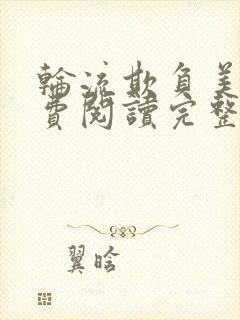 輪流欺負美
費閱讀完整
翼晗